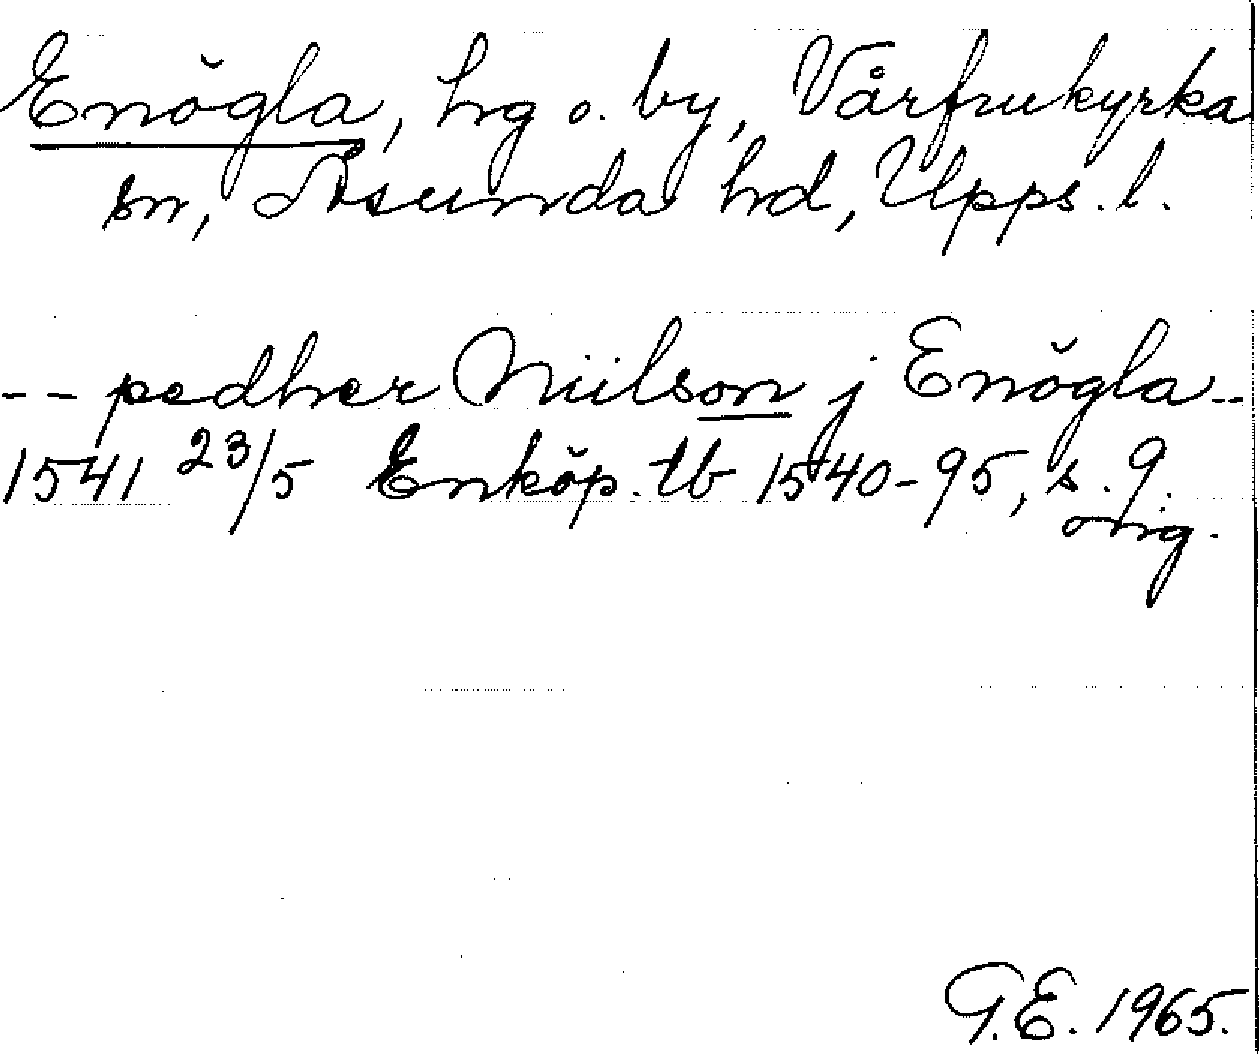 Enögla, hg o. by, Vårfrukyrka
sn, Åsunda hd, Upps. l.
-- pedher Niilson j Enögla --
1541 23/5 Enköp. tb 1540-95, s. 9.
orig.
G.E. 1965.